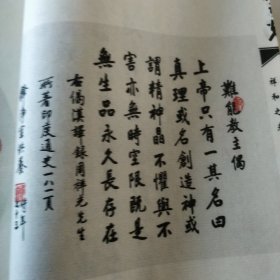 難能教主偈
上帝只有一其名曰
真理或名創造神或
謂精神晶不懼與不
害亦無時空限既是
無生品永久長存在
右偈漢譯錄周祥光先生
所著印度通史一八二頁
祥和之